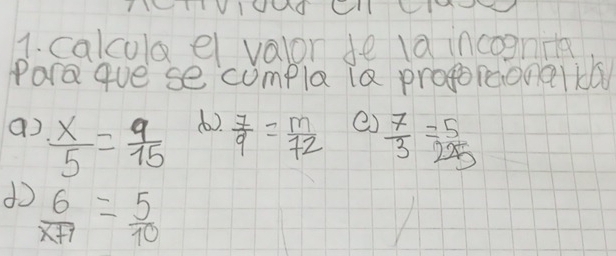 Actividad en clase
1. calcula el valor de la incognita
Para que se cumpla la proporcionalidad
a). x/5 = 9/15 b). 7/9 = m/72 c) 7/3 = 5/225
d) 6/x+1 = 5/10